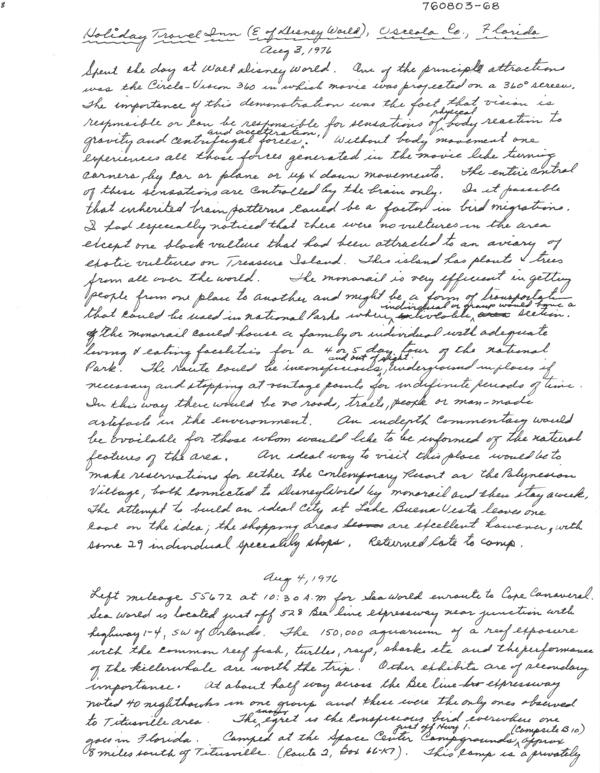 760803-68
Holiday Travel Inn (E of Disney World), Osceola Co., Florida
Aug 3, 1976
Spent the day at Walt Disney World. One of the principle attractions
was the Circle-Vision 360 in which movie was projected on a 360° screen.
The importance of this demonstration was the fact that vision is
responsible or can be responsible for sensations of physical body reaction to
gravity and centrifugal forces and acceleration. Without body movement one
experiences all those forces generated in the movie like turning
corners by car or plane or up & down movements. The entire control
of these sensations are controlled by the brain only. Is it possible
that inherited brain patterns could be a factor in bird migrations.
I had especially noticed that there were no vultures in the area
except one black vulture that had been attracted to an aviary of
exotic vultures on Treasure Island. This island has plants & trees
from all over the world. The monorail is very efficient in getting
people from one place to another and might be a form of transportation
that could be used in National Parks where individual or group would have a section.
The monorail could house a family or individual with adequate
living & eating facilities for a 4 or 5 day tour of the national
Park. The route could be inconspicuous and out of sight, underground in places if
necessary and stopping at vantage points for indefinite periods of time.
In this way there would be no roads, trails, people or man-made
artifacts in the environment. An indepth commentary would
be available for those whom would like to be informed of the natural
features of the area. An ideal way to visit this place would be to
make reservations for either the Contemporary Resort or the Polynesian
Village, both connected to DisneyWorld by monorail and then stay a week.
The attempt to build an ideal City at Lake Buena Vista leaves one
cool on the idea; the shopping areas are excellent however, with
some 29 individual speciality shops. Returned late to camp.
Aug 4, 1976
Left mileage 55672 at 10:30 A.M for Sea World enroute to Cape Canaveral.
Sea World is located just off 528 Bee line expressway near junction with
highway I-4, SW of Orlando. The 150,000 aquarium of a reef exposure
with the common reef fish, turtles, rays, sharks etc and the performance
of the killer whale are worth the trip. Other exhibits are of secondary
importance. At about half way across the Bee line expressway
noted 40 nighthawks in one group and these were the only ones observed
to Titusville area. The snowy egret is the conspicuous bird everwhere one
goes in Florida. Camped at the Space Center Campgrounds, just off Hwy 1. approx (Campsite B10)
8 miles south of Titusville. (Route 3, Box 66-K7). This camp is a privately